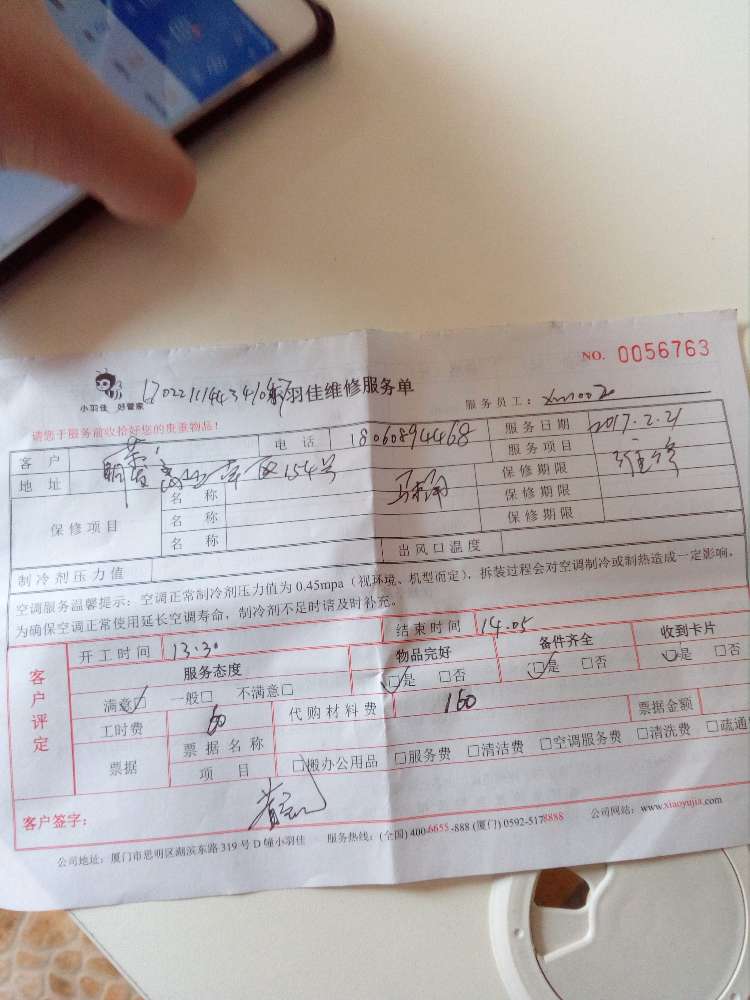 NO. 0056763
小羽佳 好管家
羽佳维修服务单
服务员工：xm1002
请您于服务前收拾好您的贵重物品！
客户 电话 18060894468 服务日期 2017.2.21
地址 154号 服务项目 维修
保修项目 名称 马桶 保修期限
名称 保修期限
名称 保修期限
制冷剂压力值 出风口温度
空调服务温馨提示：空调正常制冷剂压力值为 0.45mpa（视环境、机型而定），拆装过程会对空调制冷或制热造成一定影响，
为确保空调正常使用延长空调寿命，制冷剂不足时请及时补充。
客户评定
开工时间 13.30 结束时间 14.05
服务态度 物品完好 备件齐全 收到卡片
满意□ 一般□ 不满意□ □是 □否 □是 □否 □是 □否
工时费 60 代购材料费 160 票据金额
票据 票据名称
项目 □搬办公用品 □服务费 □清洁费 □空调服务费 □清洗费 □疏通
客户签字：
公司地址：厦门市思明区湖滨东路 319 号 D 幢小羽佳 服务热线：(全国) 400-6655-888 (厦门) 0592-5178888 公司网站：www.xiaoyujia.com